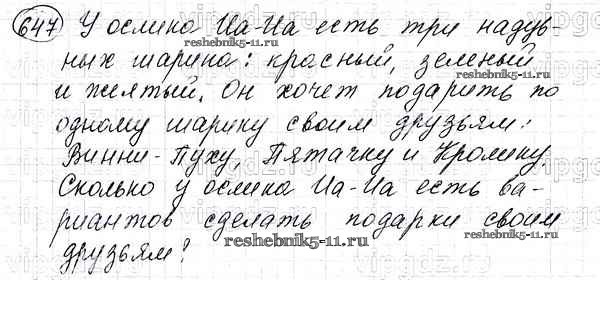 647 У ослика Иа-Иа есть три надув-
ных шарика: красный, зеленый
и желтый. Он хочет подарить по
одному шарику своим друзьям:
Винни-Пуху, Пятачку и Кролику.
Сколько у ослика Иа-Иа есть ва-
риантов сделать подарки своим
друзьям?
reshebnik5-11.ru
reshebnik5-11.ru
reshebnik5-11.ru